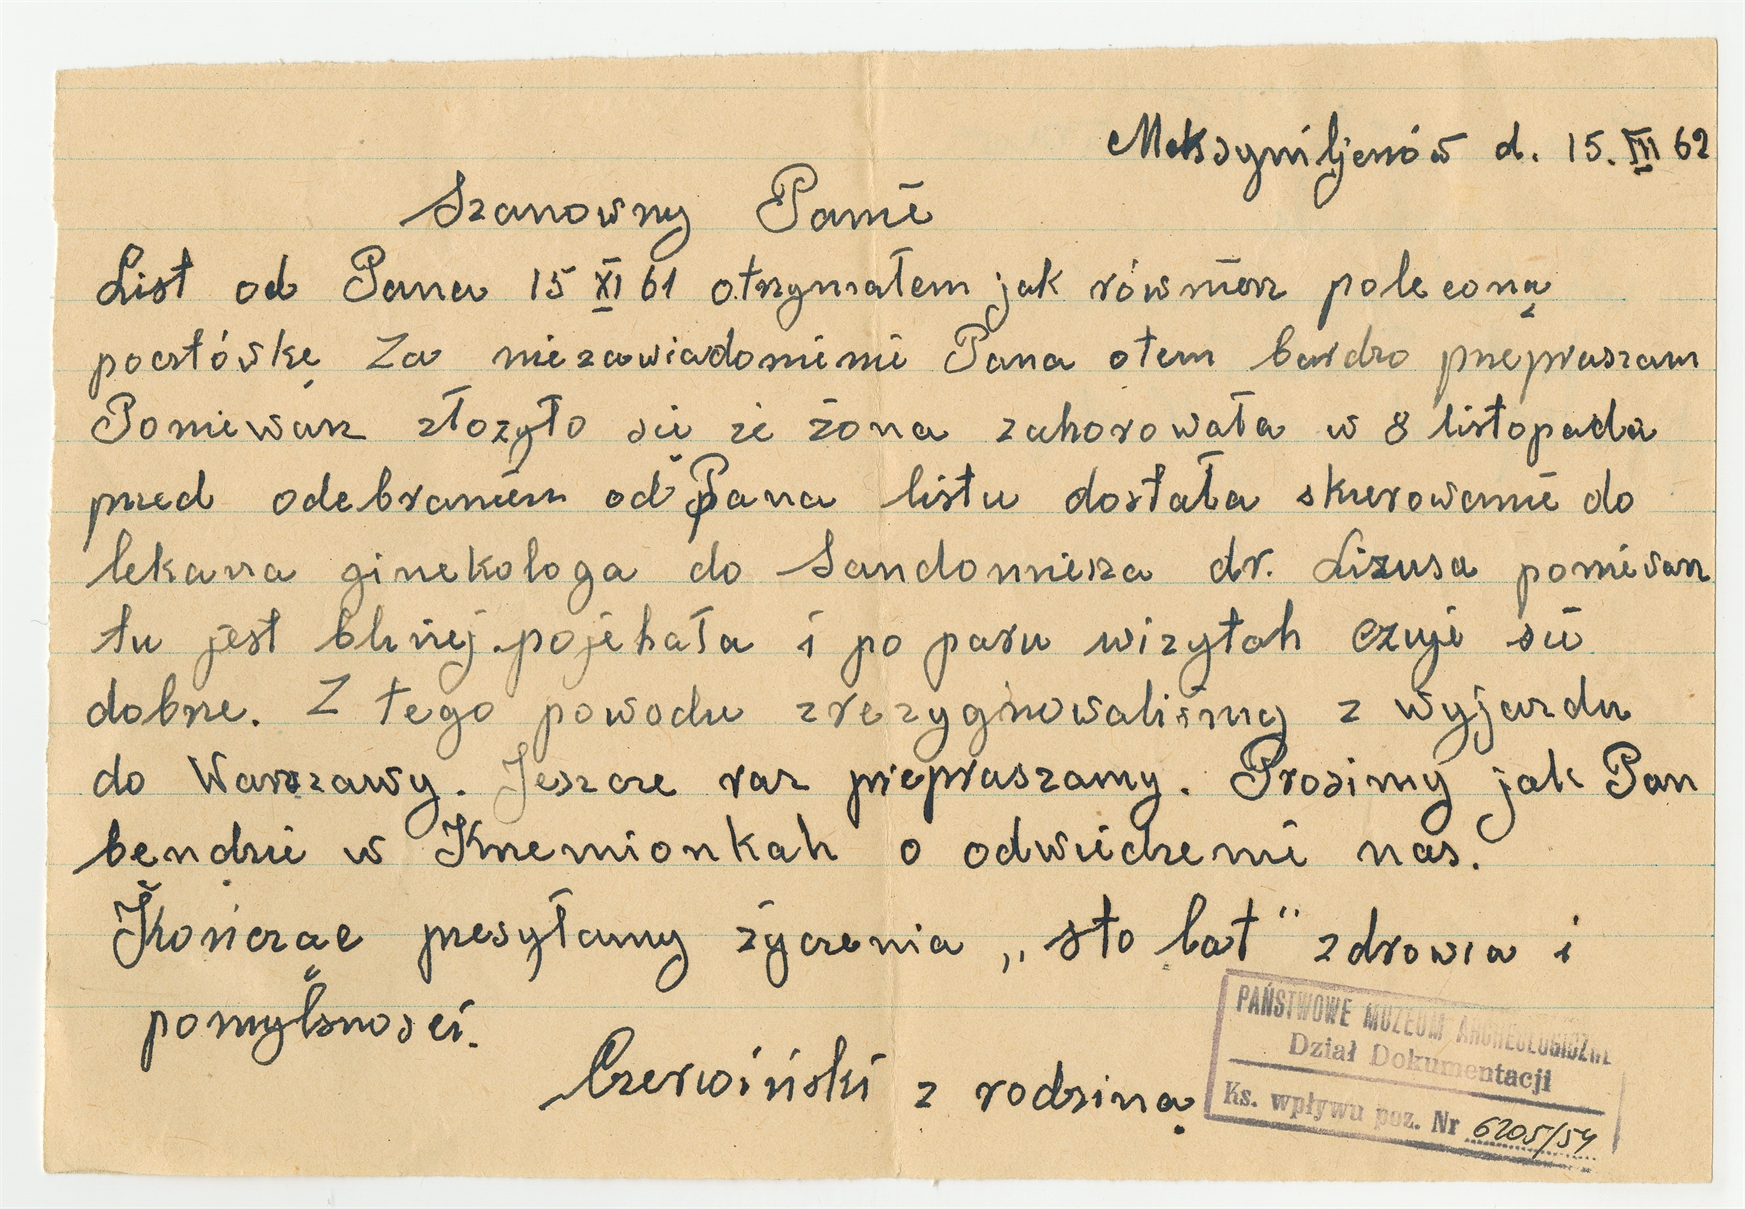 Maksymiljanów d. 15. III 62
Szanowny Panie
List od Pana 15 XI 61 otrzymałem jak równierz poleconą
pocztówkę Za niezawiadomienie Pana otem bardzo przepraszam
Poniewarz złożyło się że żona zahorowała w 8 listopada
przed odebraniem od Pana listu dostała skierowanie do
lekarza ginekologa do Sandomierza dr. Lizusa poniewarz
tu jest bliżej pojehała i po paru wizytah czuje sie
dobrze. Z tego powodu zrezygnowaliśmy z wyjazdu
do Warszawy. Jeszcze raz przepraszamy. Prosimy jak Pan
bendzie w Krzemionkah o odwiedzenie nas.
Kończąc przesyłamy życzenia „sto lat" zdrowia i
pomyślności.
Czerwiński z rodziną
PAŃSTWOWE MUZEUM ARCHEOLOGICZNE
Dział Dokumentacji
Ks. wpływu poz. Nr 6205/54